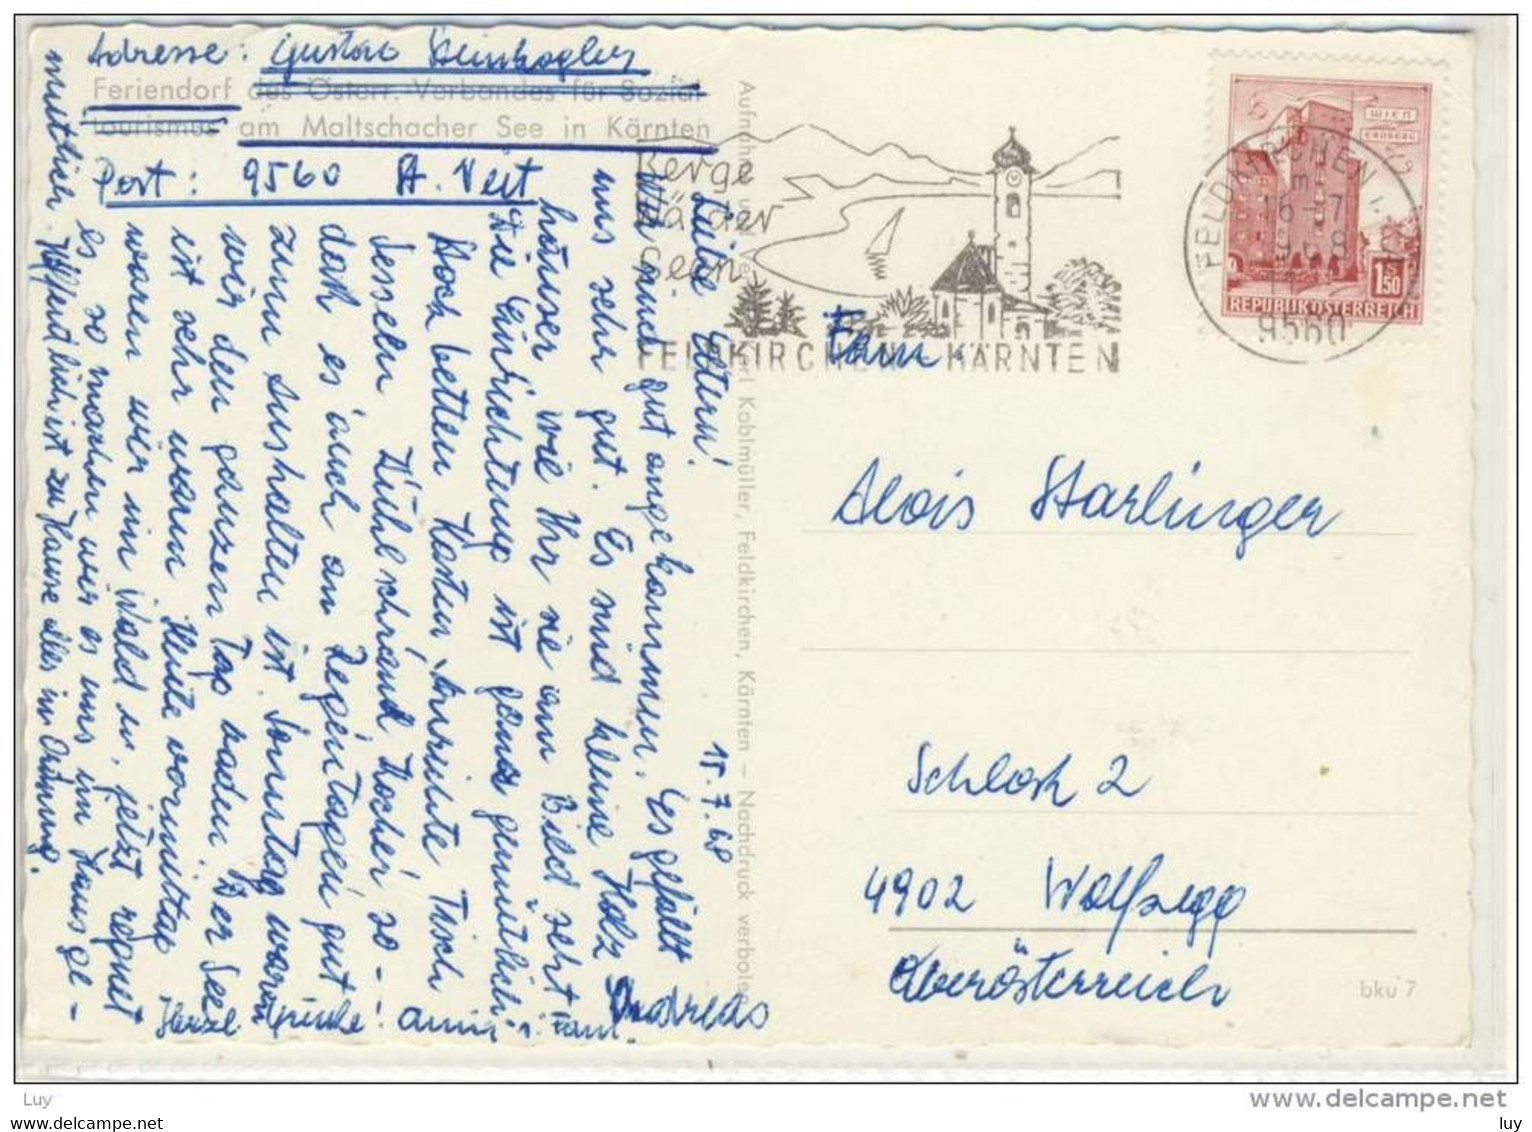 Adresse: Gustav Steinkogler
Feriendorf des Österr. Verbandes für Sozial-
tourismus am Maltschacher See in Kärnten
Post: 9560 St. Veit
15.7.68
Liebe Eltern!
Wir sind gut angekommen. Es gefällt
uns sehr gut. Es sind kleine Holz
häuser wie Ihr sie am Bild seht
Die Einrichtung ist ganz gemütlich:
Stockbetten Kasten, Anrichte Tisch
Sesseln Kühlschrank Kocher so-
daß es auch an Regentagen gut
zum Aushalten ist. Sonntag waren
wir den ganzen Tag baden. Der See
ist sehr warm. Heute vormittag
waren wir im Wald u. jetzt regnet
es so machen wir es uns im Haus ge-
mütlich. Hoffentlich ist zu Hause alles in Ordnung.
Herzl. Grüße: Anni u. Fam.
Andreas
Aufnahme und Verlag: Karl Koblmüller, Feldkirchen, Kärnten – Nachdruck verboten
Berge
Wälder
Seen
FELDKIRCHEN KÄRNTEN
WIEN
ERDBERG
S
1.50
REPUBLIK ÖSTERREICH
FELDKIRCHEN i. K.
16-7
9560
Fam.
Alois Starlinger
Schloß 2
4902 Wolfsegg
Oberösterreich
bku 7
Luy
www.delcampe.net
www.delcampe.net
luy